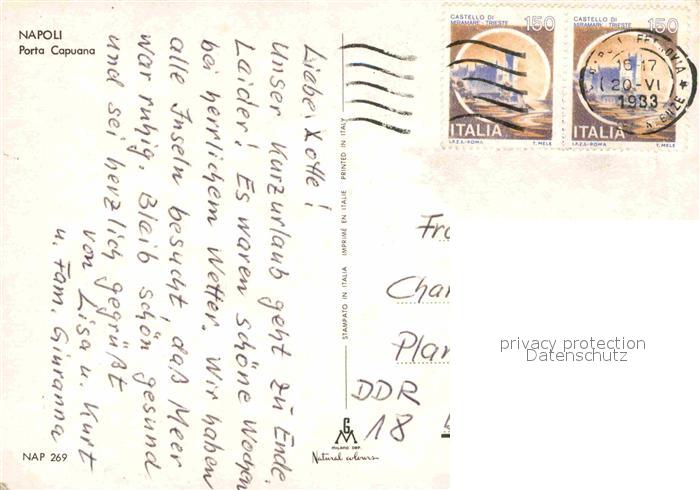 NAPOLI
Porta Capuana
Liebe Lotte!
Unser Kurzurlaub geht zu Ende.
Laider! Es waren schöne Wochen
bei herrlichem Wetter. Wir haben
alle Inseln besucht, daß Meer
war ruhig. Bleib schön gesund
und sei herzlich gegrüßt
von Lisa u. Kurt
u. Fam. Giuranna
NAP 269
STAMPATO IN ITALIA IMPRIMÉ EN ITALIE PRINTED IN ITALY
GM
MILANO DEP.
Natural colours
CASTELLO DI
MIRAMARE - TRIESTE
150
ITALIA
I.P.Z.S.-ROMA T. MELE
CASTELLO DI
MIRAMARE - TRIESTE
150
ITALIA
I.P.Z.S.-ROMA T. MELE
FERROVIA
16-17
20-VI
1983
Fra
Char
Plan
DDR
18
privacy protection
Datenschutz